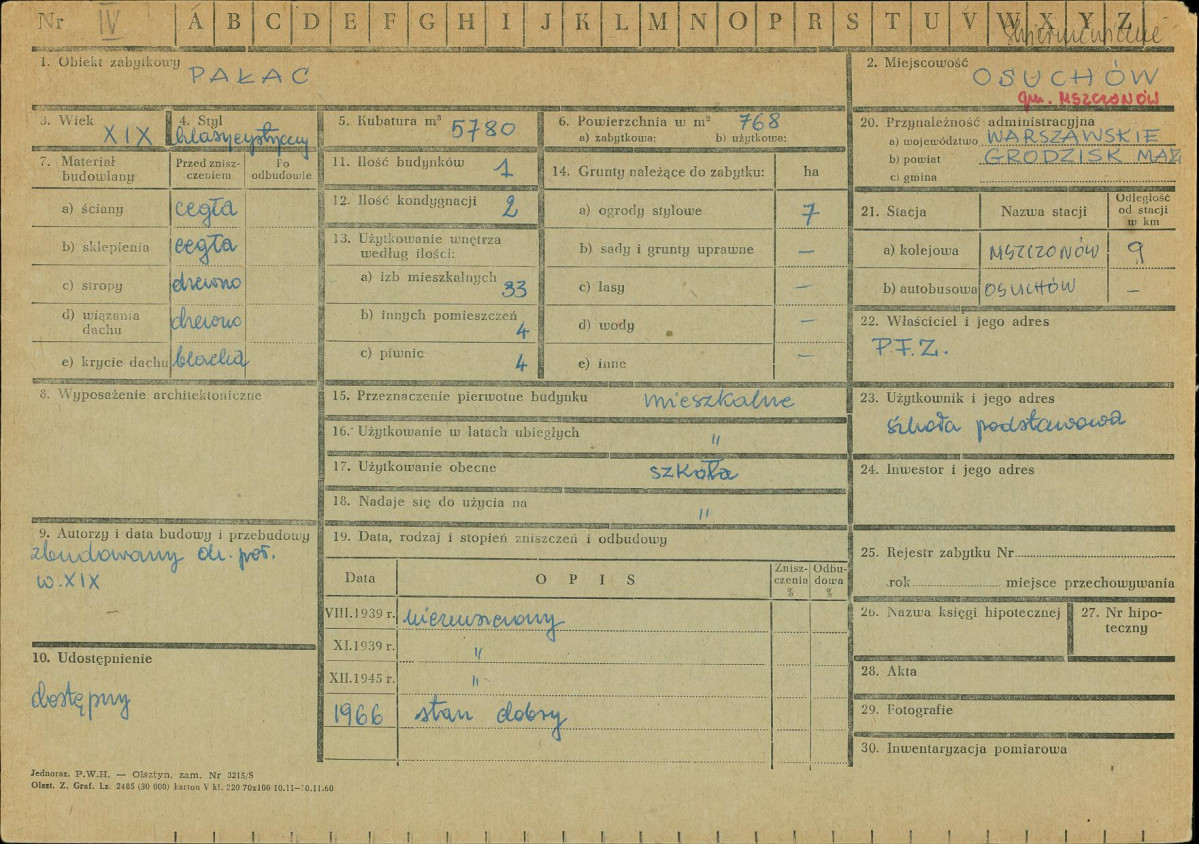 Nr IV A B C D E F G H I J K L M N O P R S T U V W X Y Z
Skierniewice
1. Obiekt zabytkowy PAŁAC
2. Miejscowość OSUCHÓW
gm. MSZCZONÓW
3. Wiek XIX
4. Styl klasycystyczny
5. Kubatura m³ 5780
6. Powierzchnia w m² 768
a) zabytkowa: b) użytkowa:
7. Materiał budowlany
Przed znisz-
czeniem
Po
odbudowie
a) ściany cegła
b) sklepienia cegła
c) stropy drewno
d) wiązania
dachu drewno
e) krycie dachu blacha
8. Wyposażenie architektoniczne
9. Autorzy i data budowy i przebudowy
zbudowany ok. poł.
w. XIX
10. Udostępnienie
dostępny
11. Ilość budynków 1
12. Ilość kondygnacji 2
13. Użytkowanie wnętrza
według ilości:
a) izb mieszkalnych 33
b) innych pomieszczeń 4
c) piwnic 4
14. Grunty należące do zabytku: ha
a) ogrody stylowe 7
b) sady i grunty uprawne —
c) lasy —
d) wody —
e) inne —
15. Przeznaczenie pierwotne budynku mieszkalne
16. Użytkowanie w latach ubiegłych "
17. Użytkowanie obecne szkoła
18. Nadaje się do użycia na "
19. Data, rodzaj i stopień zniszczeń i odbudowy
Data OPIS
Znisz-
czenia
%
Odbu-
dowa
%
VIII.1939 r. niezniszczony
XI.1939 r. "
XII.1945 r. "
1966 stan dobry
20. Przynależność administracyjna
a) województwo WARSZAWSKIE
b) powiat GRODZISK MAZ
c) gmina
21. Stacja Nazwa stacji
Odległość
od stacji
w km
a) kolejowa MSZCZONÓW 9
b) autobusowa OSUCHÓW —
22. Właściciel i jego adres
P.F.Z.
23. Użytkownik i jego adres
szkoła podstawowa
24. Inwestor i jego adres
25. Rejestr zabytku Nr
rok miejsce przechowywania
26. Nazwa księgi hipotecznej
27. Nr hipo-
teczny
28. Akta
29. Fotografie
30. Inwentaryzacja pomiarowa
Jednoraz. P.W.H. — Olsztyn, zam. Nr 3215/S
Olszt. Z. Graf. Lz. 2485 (30 000) karton V kl. 220 70x100 10.11—30.11.60